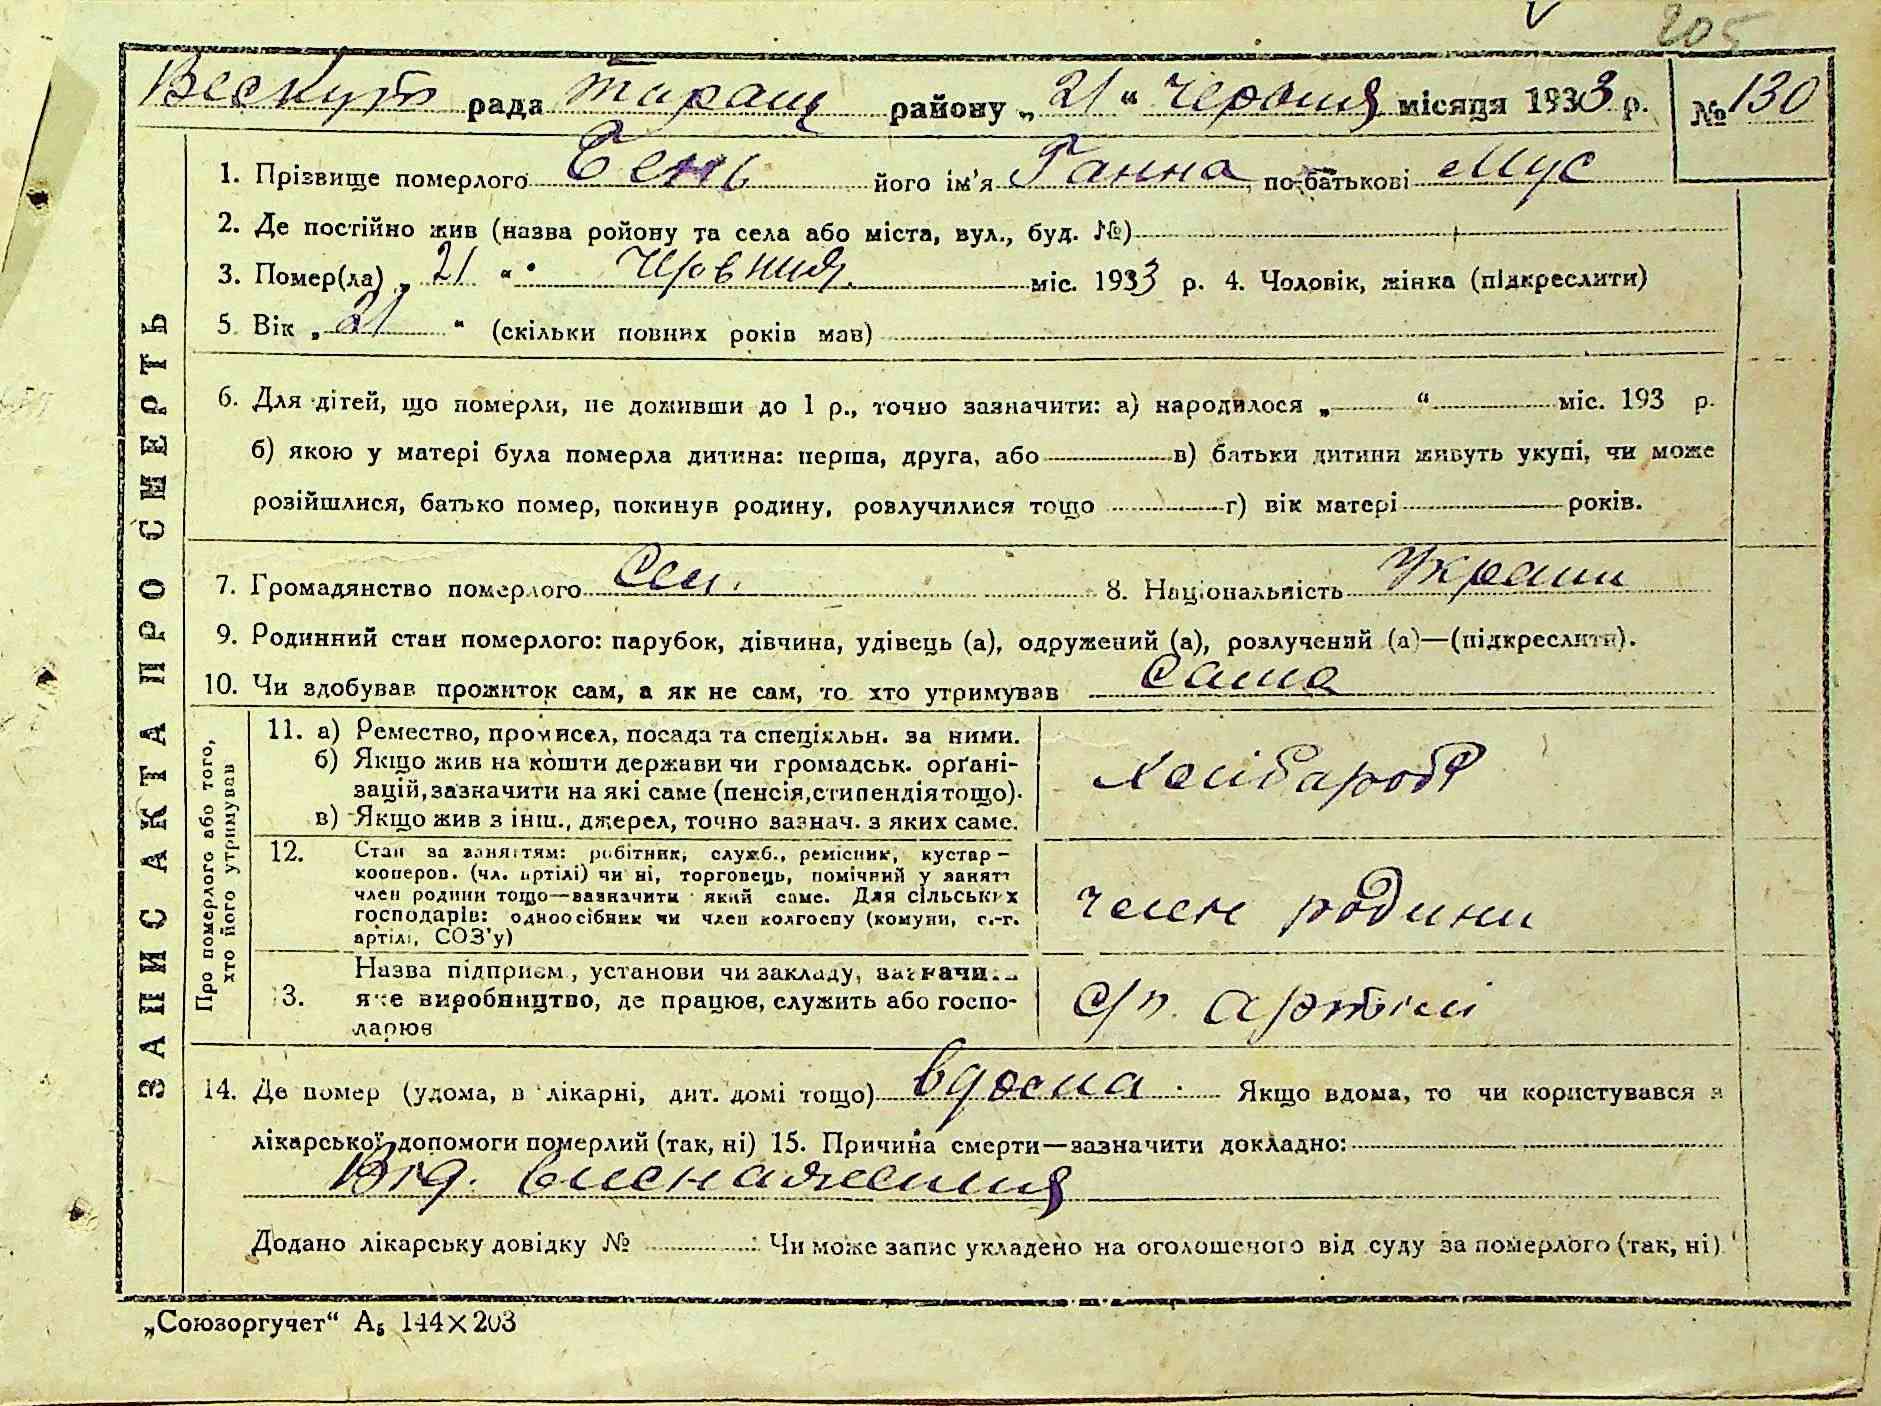 205
Вескут рада Таращ району „ 21 “ Червня місяця 1933 р. № 130
1. Прізвище померлого Бень його ім'я Ганна по-батькові Мус
2. Де постійно жив (назва ройону та села або міста, вул., буд. №)
3. Помер(ла) „ 21 “ Червния міс. 1933 р. 4. Чоловік, жінка (підкреслити)
5. Вік „ 21 “ (скільки повних років мав)
6. Для дітей, що померли, не доживши до 1 р., точно зазначити: а) народилося „ “ міс. 193 р.
б) якою у матері була померла дитина: перша, друга, або в) батьки дитини живуть укупі, чи може
розійшлися, батько помер, покинув родину, розлучилися тощо г) вік матері років.
7. Громадянство померлого Сел. 8. Національність Украин
9. Родинний стан померлого: парубок, дівчина, удівець (а), одружений (а), розлучений (а)—(підкреслити).
10. Чи здобував прожиток сам, а як не сам, то хто утримував Сама
ЗАПИС АКТА ПРО СМЕРТЬ
Про померлого або того, хто його утримував
11. а) Ремество, промисел, посада та спеціяльн. за ними.
б) Якщо жив на кошти держави чи громадськ. орґані-
зацій, зазначити на які саме (пенсія, стипендія тощо).
в) Якщо жив з інш., джерел, точно зазнач. з яких саме.
Хлібароб
12. Стан за заняттям: робітник, служб., ремісник, кустар –
кооперов. (чл. артілі) чи ні, торговець, помічний у занятт
член родини тощо—зазначити який саме. Для сільських
господарів: одноосібник чи член колгоспу (комуни, с.-г.
артілі, СОЗ'у)
член родини
13. Назва підприєм., установи чи закладу, зазначи
яке виробництво, де працює, служить або госпо-
дарює
с/г. артілі
14. Де помер (удома, в лікарні, дит. домі тощо) вдома. Якщо вдома, то чи користувався з
лікарської допомоги померлий (так, ні) 15. Причина смерти—зазначити докладно:
Від. виснаження
Додано лікарську довідку № Чи може запис укладено на оголошеного від суду за померлого (так, ні)
„Союзоргучет“ А₅ 144×203